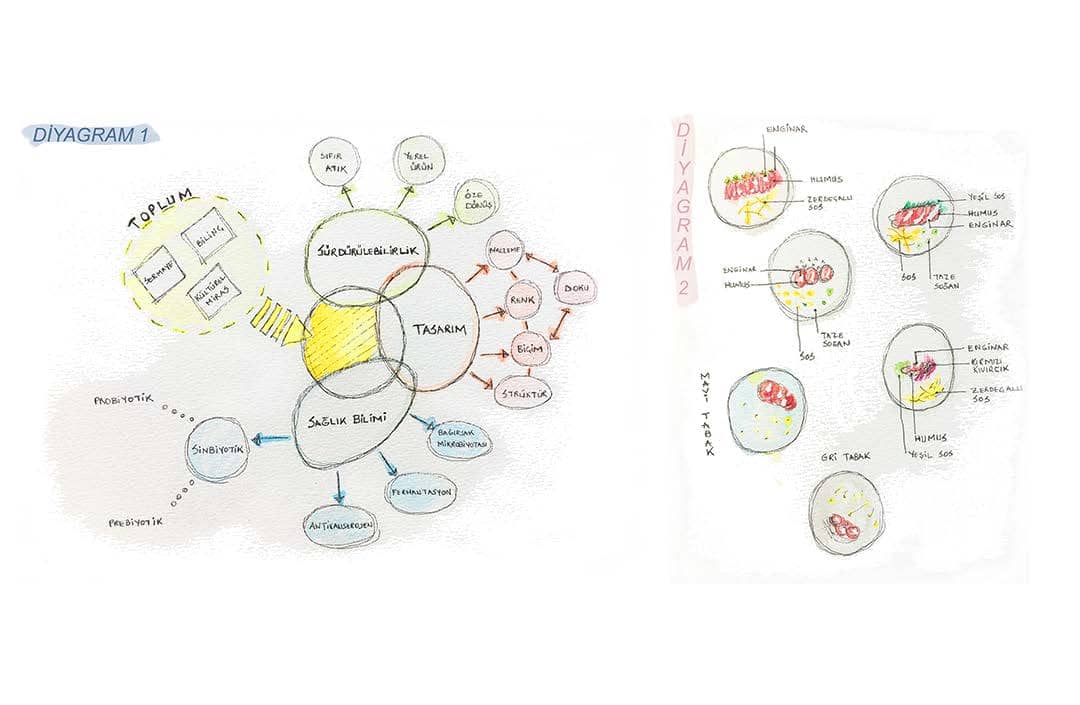 DİYAGRAM 1
TOPLUM
SERMAYE
BİLİNÇ
KÜLTÜREL
MİRAS
SIFIR
ATIK
YEREL
ÜRÜN
ÖZE
DÖNÜŞ
SÜRDÜRÜLEBİLİRLİK
TASARIM
MALZEME
RENK
DOKU
BİÇİM
STRÜKTÜR
SAĞLIK BİLİMİ
BAĞIRSAK
MİKROBİYOTASI
FERMANTASYON
ANTİKANSEROJEN
SİNBİYOTİK
PROBİYOTİK
PREBİYOTİK
DİYAGRAM 2
ENGİNAR
HUMUS
ZERDEÇALLI
SOS
YEŞİL SOS
HUMUS
ENGİNAR
SOS
TAZE
SOĞAN
ENGİNAR
HUMUS
SOS
TAZE
SOĞAN
ENGİNAR
KIRMIZI
KIVIRCIK
ZERDEÇALLI
SOS
HUMUS
YEŞİL SOS
MAVİ TABAK
GRİ TABAK